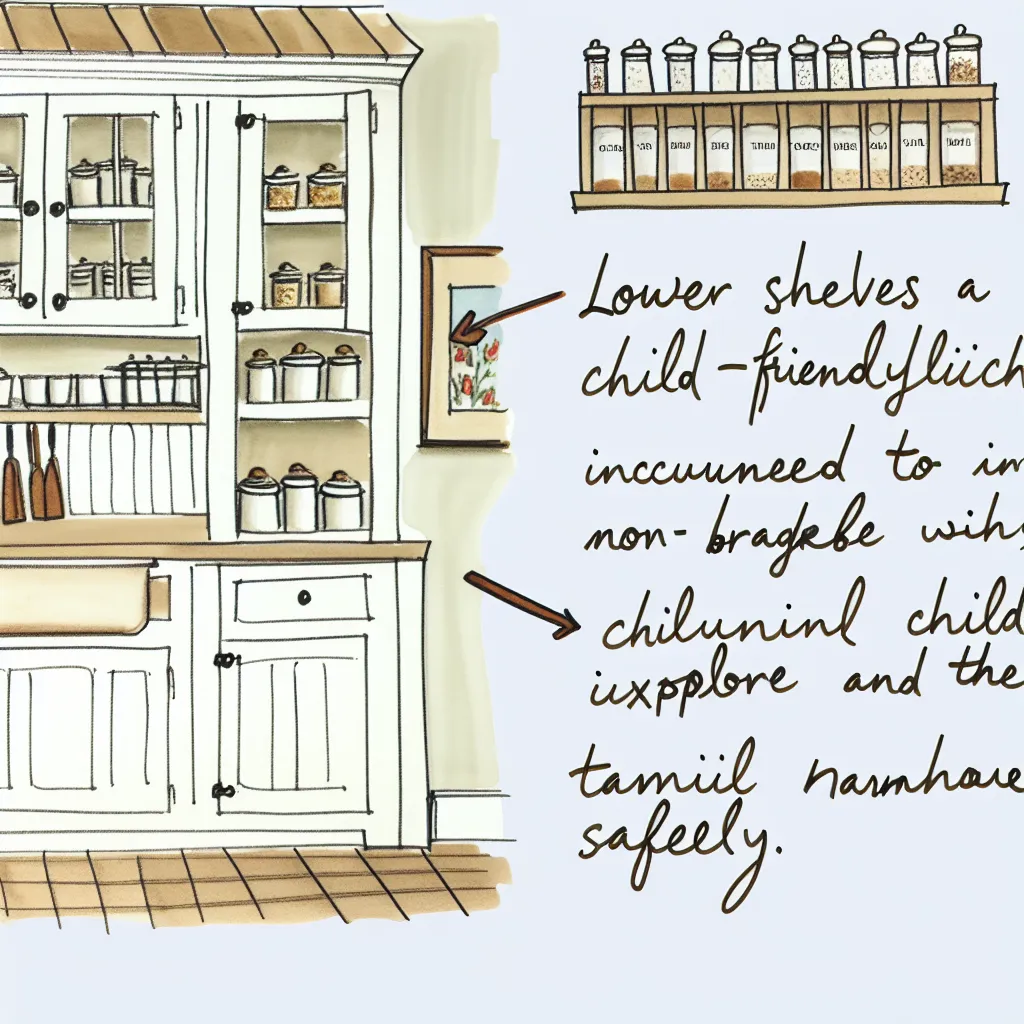 Lower shelves a
child-friendlyliich
inccuuneed to im
non-bragkbe wihs
chiluninl child
iixpplore and the
tamiil narmhoue
safeely.